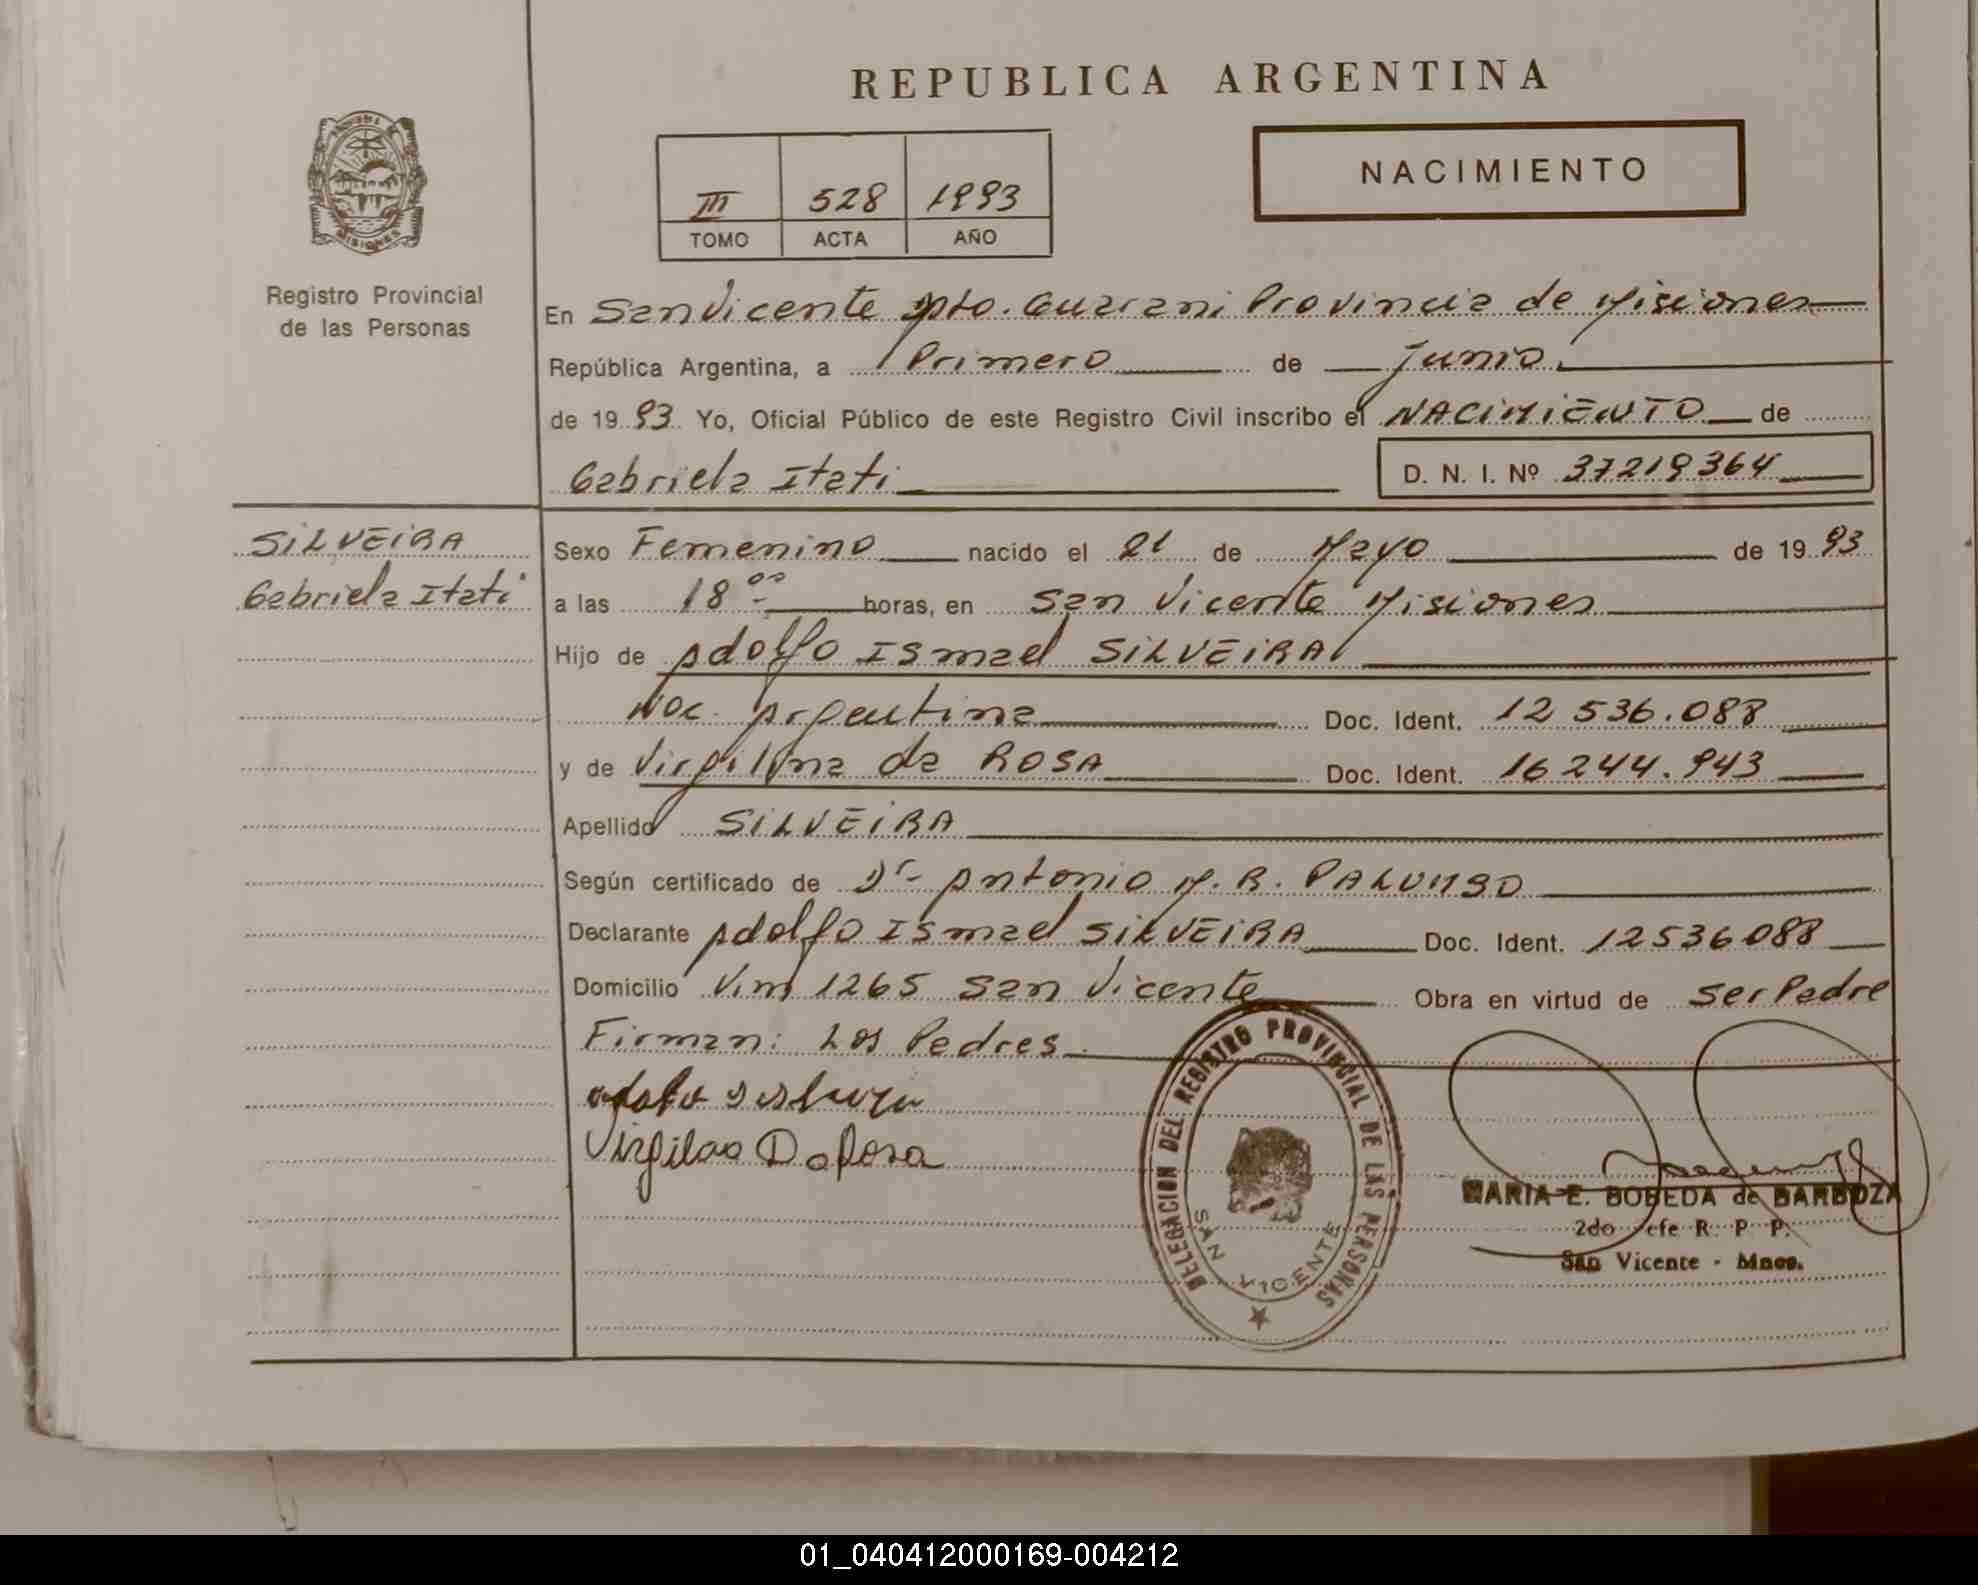 REPUBLICA ARGENTINA
MISIONES
Registro Provincial
de las Personas
III 528 1993
TOMO ACTA AÑO
NACIMIENTO
En San Vicente Dpto. Guarani Provincia de Misiones
República Argentina, a Primero de Junio
de 19 93 Yo, Oficial Público de este Registro Civil inscribo el NACIMIENTO de
Gabriela Itati D. N. I. Nº 37219364
SILVEIRA
Gabriela Itati
Sexo Femenino nacido el 21 de Mayo de 19 93
a las 18 oo horas, en San Vicente Misiones
Hijo de Adolfo Ismael SILVEIRA
Nac. Argentina Doc. Ident. 12 536.088
y de Virgilina da ROSA Doc. Ident. 16 244.943
Apellido SILVEIRA
Según certificado de Dr- Antonio M. R. PALUMBO
Declarante Adolfo Ismael SILVEIRA Doc. Ident. 12536088
Domicilio 1265 San Vicente Obra en virtud de ser Padre
Firman: Los Padres
Da Rosa
DELEGACION DEL REGISTRO PROVINCIAL DE LAS PERSONAS
SAN VICENTE
MARIA E. BOBEDA de BARBOZA
2do Jefe R. P. P.
San Vicente - Mnes.
01_040412000169-004212